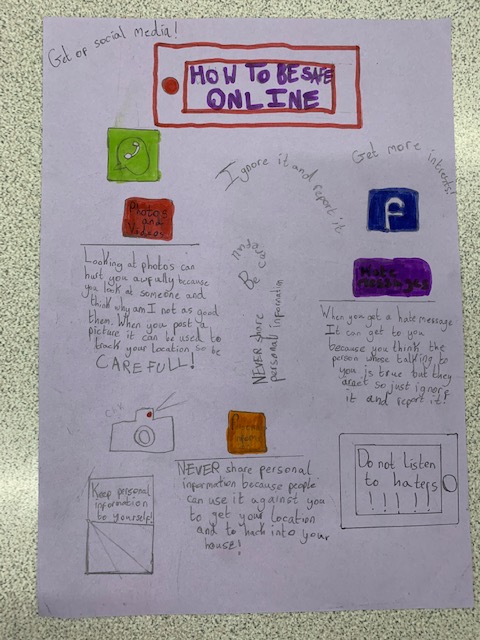 Get op social media!
HOW TO BE SAFE
ONLINE
Ignore it and report it
Get more intrests!
Photos
and
Videos
Looking at photos can
hurt you awfully because
you look at someone and
think why am I not as good
them. When you post a
picture it can be used to
track your location so be
CAREFULL!
Be
NEVER share
personal information
Hate
messages
When you get a hate message
It can get to you
because you think the
person whose talking to
you is true but they
arent so just ignor
it and report it!
NEVER share personal
information because people
can use it against you
to get your location
and to hack into your
house!
Keep personal
information
to yourself!
Do not Listen
to haters
! ! ! ! !